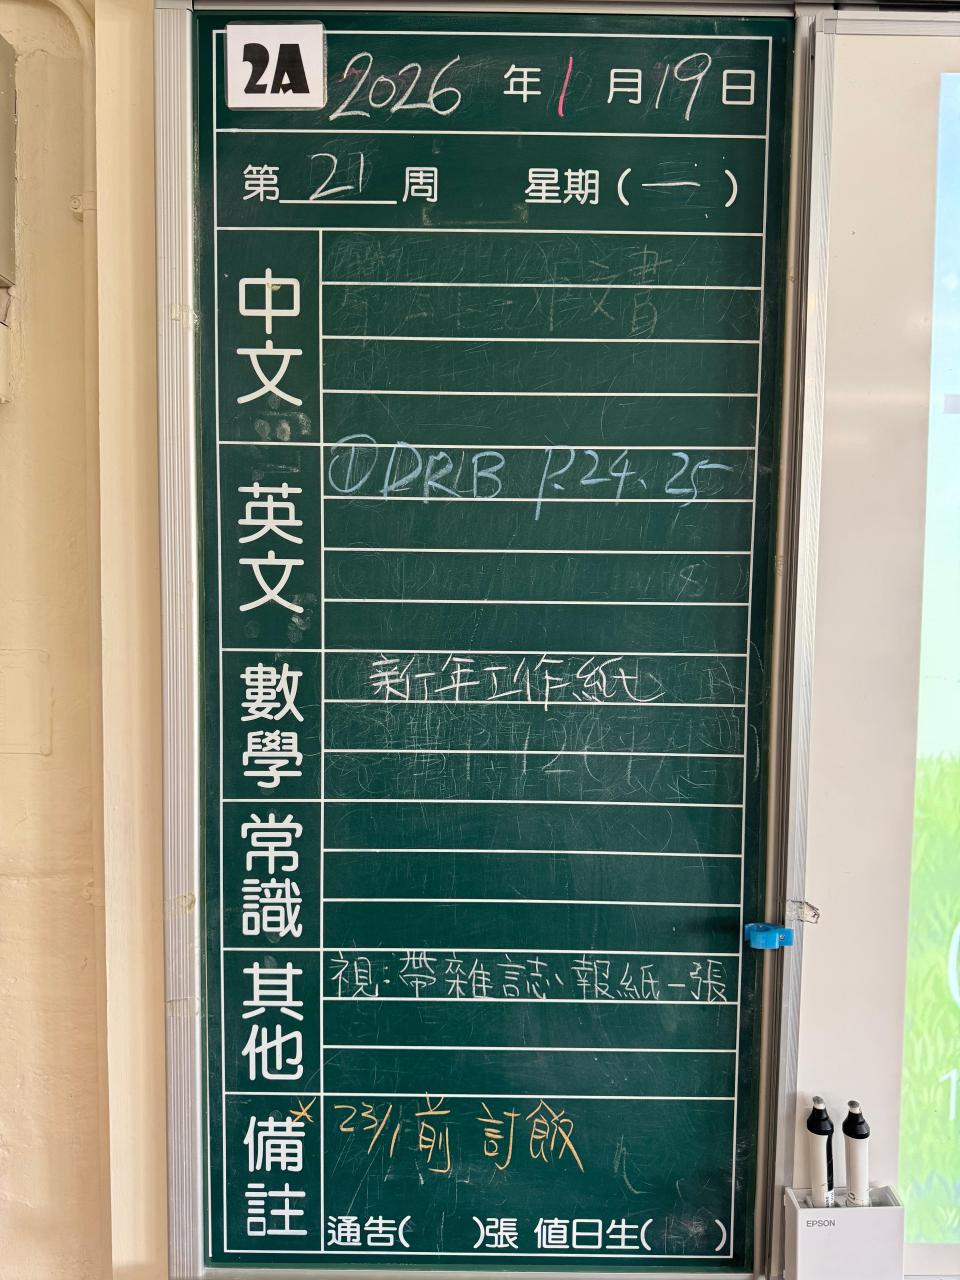 2A 2026 年 1 月 19 日
第 21 周 星期 ( 一 )
中文
英文
①DRB P.24、25
數學
新年工作紙
常識
其他
視:帶雜誌、報紙一張
備註
* 23/1 前 訂飯
通告( )張 值日生( )
EPSON